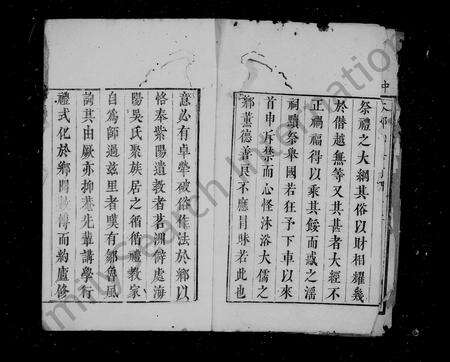 祭禮之大綱其俗以財相耀幾
於僭越無等又其甚者大經不
正禍福得以乘其餒而惑之淫
祠黷祭舉國若狂予下車以來
首申斥禁而心怪沐浴大儒之
鄉薰德善良不應冐昧若此也
意必有卓犖破俗作法於鄉以
恪奉紫陽遺教者茗洲僻處海
陽吳氏聚族居之循循禮教家
自為師過茲里者嘆有鄒魯風
詢其由厥亦抑菴先輩講學行
禮式化於鄉閭 傳而約廬脩